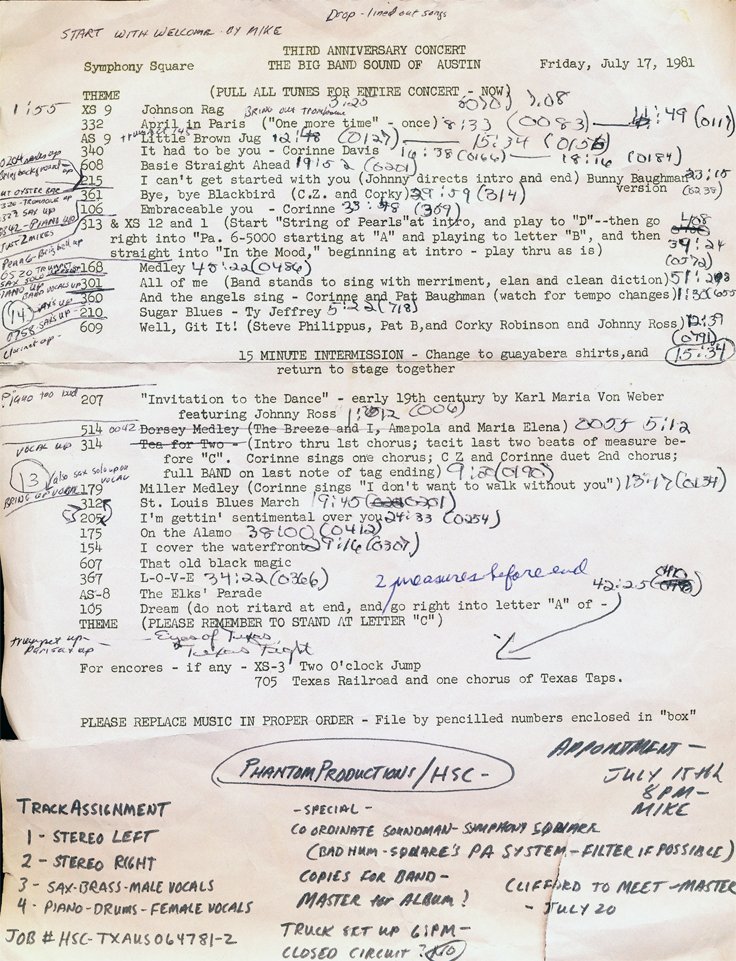 Drop - lined out songs
START WITH WELCOME - BY MIKE
THIRD ANNIVERSARY CONCERT
Symphony Square THE BIG BAND SOUND OF AUSTIN Friday, July 17, 1981
THEME (PULL ALL TUNES FOR ENTIRE CONCERT - NOW)
1:55 XS 9 Johnson Rag BRING OUT TROMBONE
332 April in Paris ("One more time" - once) 8:33 (0083) 11:49 (0117)
AS 9 Little Brown Jug 12:48 (0127) 15:34 (0156)
340 It had to be you - Corinne Davis 16:38 (0166) 18:16 (0184)
608 Basie Straight Ahead 19:52 (0201)
215 I can't get started with you (Johnny directs intro and end) Bunny Baughman 23:15
version (0238)
361 Bye, bye Blackbird (C.Z. and Corky) 29:59 (314)
106 Embraceable you - Corinne 33:48 (369)
313 & XS 12 and 1 (Start "String of Pearls" at intro, and play to "D"--then go
right into "Pa. 6-5000 starting at "A" and playing to letter "B", and then 39:24
straight into "In the Mood," beginning at intro - play thru as is) (0572)
168 Medley 45:22 (0486)
301 All of me (Band stands to sing with merriment, elan and clean diction)
360 And the angels sing - Corinne and Pat Baughman (watch for tempo changes)
210 Sugar Blues - Ty Jeffrey 5:22 (718)
609 Well, Git It! (Steve Philippus, Pat B,and Corky Robinson and Johnny Ross) 12:39
(0791)
15:34
15 MINUTE INTERMISSION - Change to guayabera shirts,and
return to stage together
Piano too loud
207 "Invitation to the Dance" - early 19th century by Karl Maria Von Weber
featuring Johnny Ross (006)
514 0042 Dorsey Medley (The Breeze and I, Amapola and Maria Elena) 0055 5:12
VOCAL UP 314 Tea for Two - (Intro thru lst chorus; tacit last two beats of measure be-
fore "C". Corinne sings one chorus; C Z and Corinne duet 2nd chorus;
full BAND on last note of tag ending) 9:20 (0190)
13 also sax solo upon vocal
BRING UP VOCAL
179 Miller Medley (Corinne sings "I don't want to walk without you") 13:17 (0134)
312 St. Louis Blues March 19:45 (0201)
205 I'm gettin' sentimental over you 24:33 (0254)
175 On the Alamo 38:00 (0412)
154 I cover the waterfront 29:16 (0307)
607 That old black magic
367 L-O-V-E 34:22 (0366) 2 measures before end 42:25
AS-8 The Elks' Parade
105 Dream (do not ritard at end, and go right into letter "A" of -
THEME (PLEASE REMEMBER TO STAND AT LETTER "C")
trumpet up -
- Eyes of Texas
Texas Fight
For encores - if any - XS-3 Two O'clock Jump
705 Texas Railroad and one chorus of Texas Taps.
PLEASE REPLACE MUSIC IN PROPER ORDER - File by pencilled numbers enclosed in "box"
PHANTOM PRODUCTIONS/HSC-
APPOINTMENT -
JULY 15th
8 PM -
MIKE
TRACK ASSIGNMENT
1 - STEREO LEFT
2 - STEREO RIGHT
3 - SAX-BRASS-MALE VOCALS
4 - PIANO-DRUMS-FEMALE VOCALS
JOB # HSC-TXAUS064781-2
- SPECIAL -
COORDINATE SOUNDMAN - SYMPHONY SQUARE
(BAD HUM - SQUARE'S PA SYSTEM - FILTER IF POSSIBLE)
COPIES FOR BAND -
MASTER for ALBUM ?
TRUCK SET UP 6 PM -
CLOSED CIRCUIT ? NO
CLIFFORD TO MEET - MASTER
- JULY 20